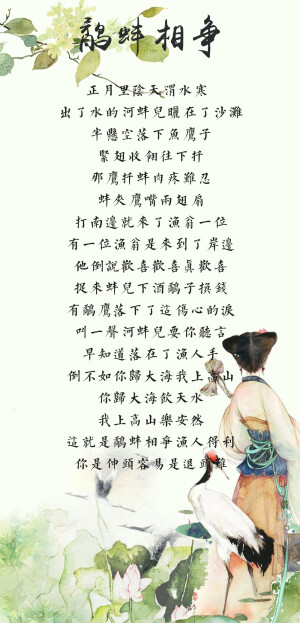 鷸蚌相爭
正月里蔭天渭水寒
出了水的河蚌兒曬在了沙灘
半懸空落下魚鷹子
緊翅收翎往下扦
那鷹扦蚌肉疼難忍
蚌夾鷹嘴兩翅扇
打南邊就來了漁翁一位
有一位漁翁是來到了岸邊
他倒說歡喜歡喜真歡喜
捉來蚌兒下酒鷸子換錢
有鷸鷹落下了這傷心的淚
叫一聲河蚌兒要你聽言
早知道落在了漁人手
倒不如你歸大海我上高山
你歸大海飲天水
我上高山樂安然
這就是鷸蚌相爭漁人得利
你是伸頭容易是退頭難